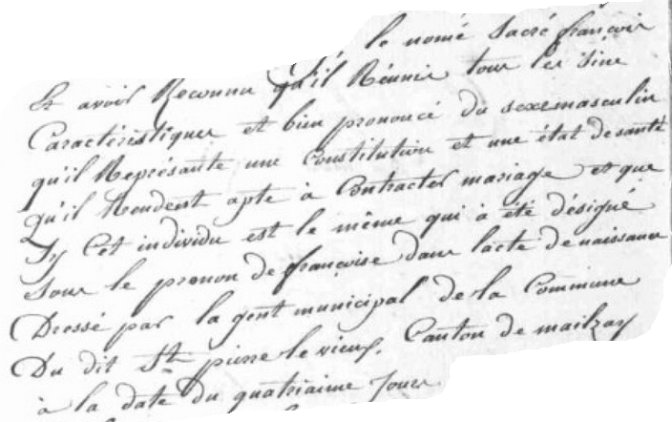 le nomé Sacré françois
Et avoir Reconnu qu'il Réunis tous les sine
Caractéristiques et bien prononcé du sexe masculin
qu'il Représante une Constitution et une état de santé
qu'il Rendent apte à Contracter mariage et que
Sy Cet individu est le même qui à été désigné
sous le prenon de françoise dans lacte de naissance
Dressé par la gent municipal de la Commune
Du dit St pierre le vieux, Canton de mailzay
à la date du quatriaime Jour